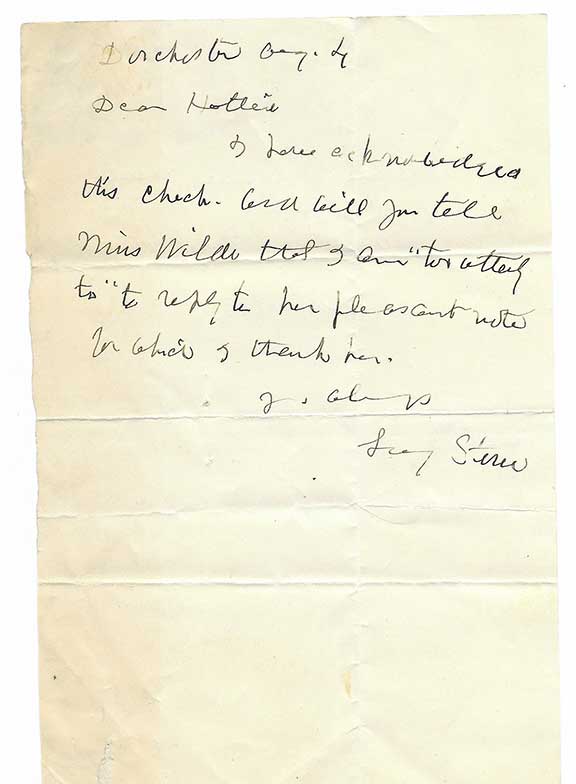 Dorchester Aug. 4
Dear Hattie
I have acknowledged
this check. And will you tell
Miss Wilde that I am "too utterly
too" to reply to her pleasant note
for which I thank her.
Yrs always
Lucy Stone